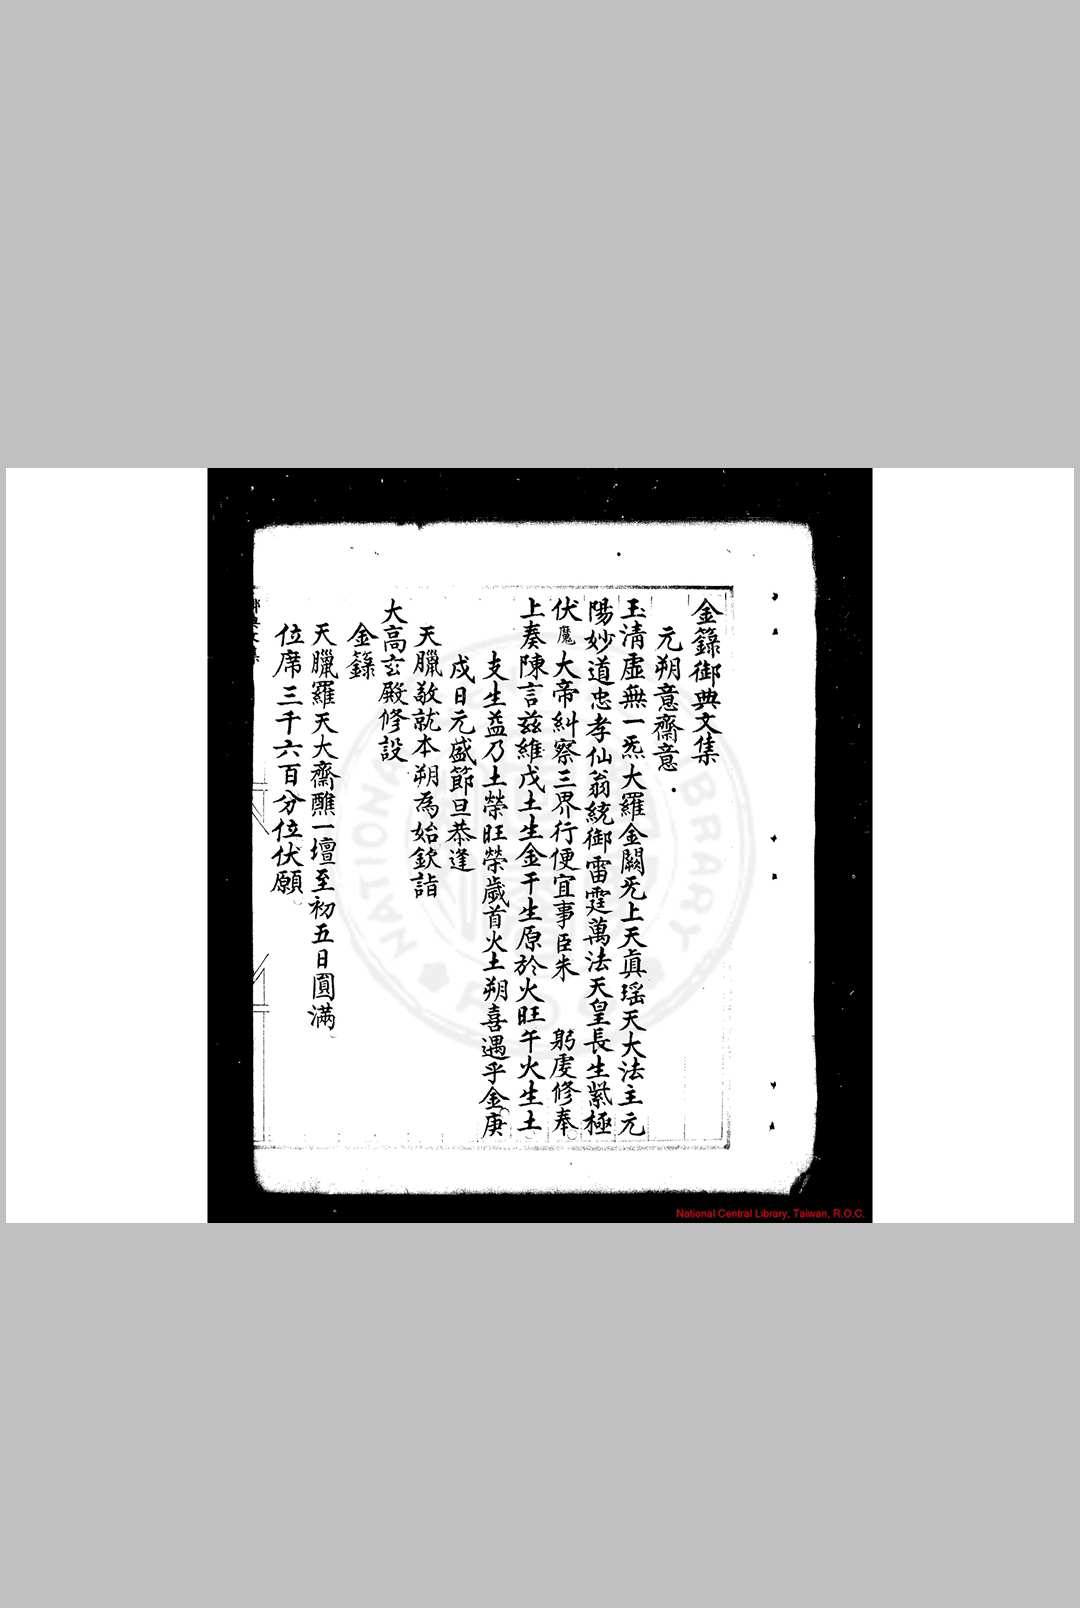 金籙御典文集
元朔意齋意
玉清虛無一炁大羅金闕旡上天眞瑶天大法主元
陽妙道忠孝仙翁統御雷霆萬法天皇長生紫極
伏魔大帝糾察三界行便宜事臣朱 躬虔修奉
上奏陳言兹維戊土生金干生原於火旺午火生土
支生益乃土榮旺榮歲首火土朔喜遇乎金庚
戌日元盛節旦恭逢
天臘敬就本朔為始欽詣
大高玄殿修設
金籙
天臘羅天大齋醮一壇至初五日圓滿
位席三千六百分位伏願
NATIONAL
LIBRARY
National Central Library, Taiwan, R.O.C.